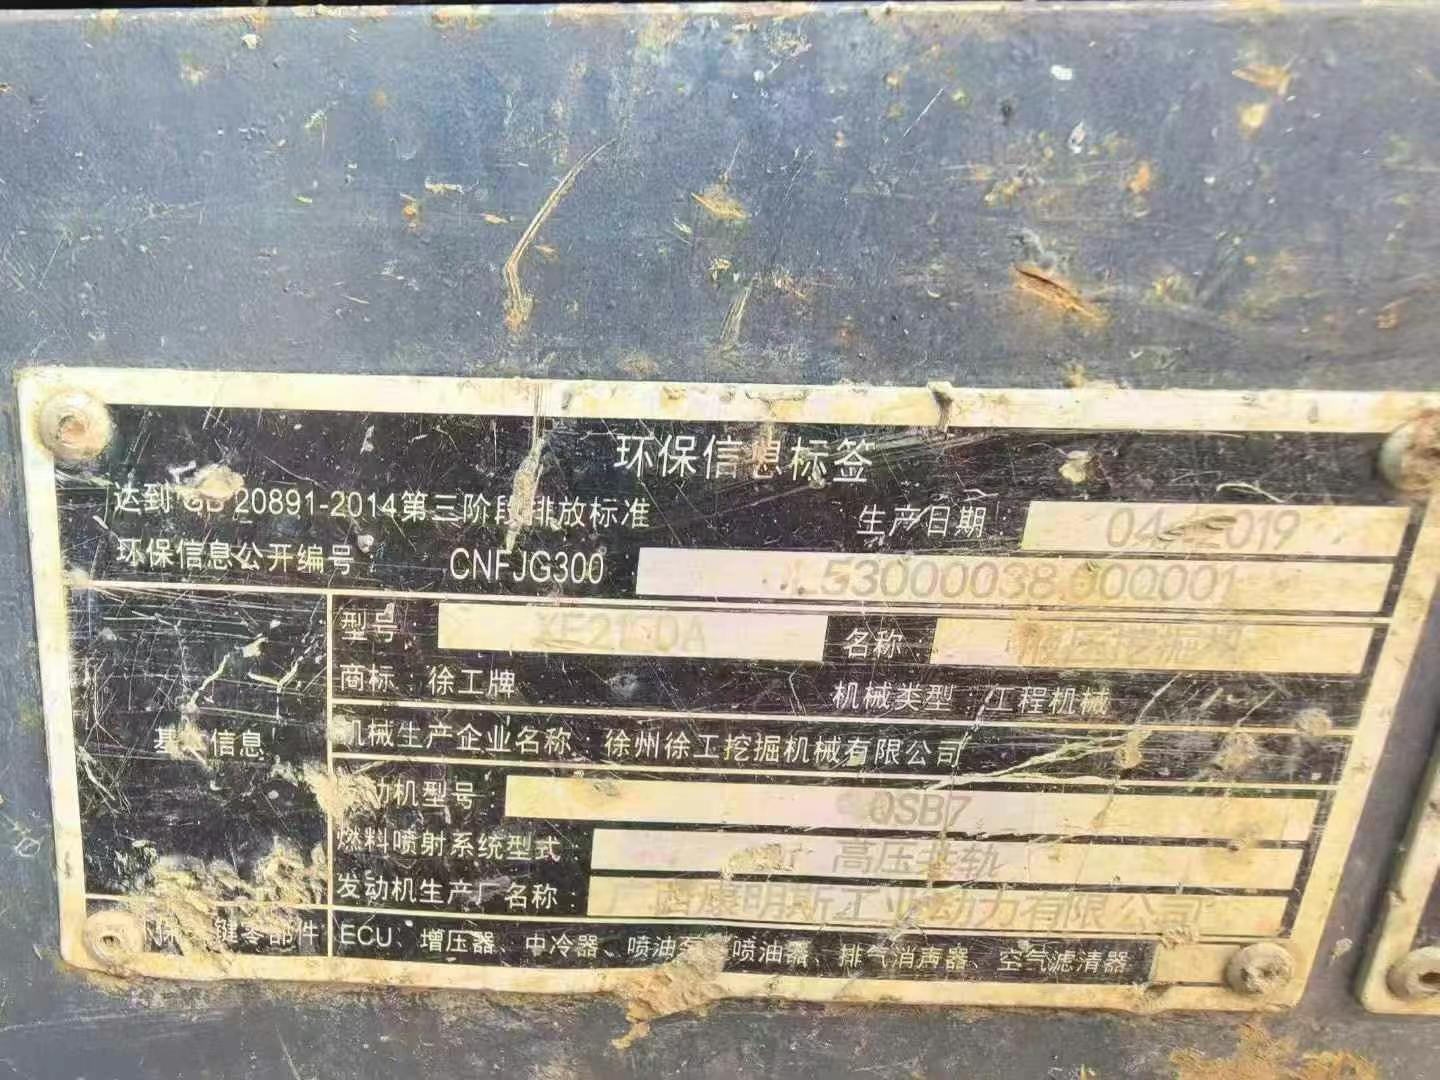 环保信息标签
达到 GB 20891-2014第三阶段排放标准
生产日期: 04 2019
环保信息公开编号 CNFJG300 53000038 000001
型号: 名称:
商标: 徐工牌 机械类型: 工程机械
基本信息
机械生产企业名称: 徐州徐工挖掘机械有限公司
发动机型号: QSB7
燃料喷射系统型式: 高压共轨
发动机生产厂名称: 广西康明斯工业动力有限公司
环保关键零部件 ECU、增压器、中冷器、喷油泵、喷油器、排气消声器、空气滤清器